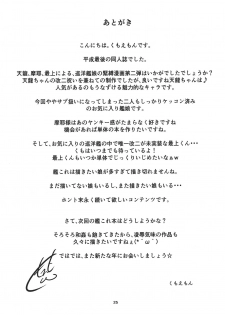 あとがき
こんにちは。くもえもんです。
平成最後の同人誌でした。
天龍、摩耶、最上による、巡洋艦娘の緊縛漫画第二弾はいかがでしたでしょうか？
天龍ちゃんの改二祝いを兼ねての制作でした。良いですね天龍ちゃんは♪
人気があるのもうなずける魅力的なキャラです。
今回ややサブ扱いになってしまった二人もしっかりケッコン済みの
のお気に入り艦娘です。
摩耶様はあのヤンキー感がたまらなく好きですね
機会があれば単体の本を作りたいですね。
そして、お気に入りの巡洋艦の中で唯一改二が未実装な最上くん…
くもはいつまでも待っているよ！
最上くんもいつか単体でじっくりいじめたいなぁｗ
艦これは描きたい娘が多すぎて描き切れませんね。
まだ描いてない娘もいるし、また描きたい娘もいるし・・・
ホント末永く描いて欲しいコンテンツです。
さて、次回の艦これ本はどうしようかな？
そろそろ和姦も飽きてきたから、凌辱気味の作品も
久々に描きたいですねぇ(*´ω｀)
ではでは、また新たな年にお会いしましょう☆
くもえもん
25